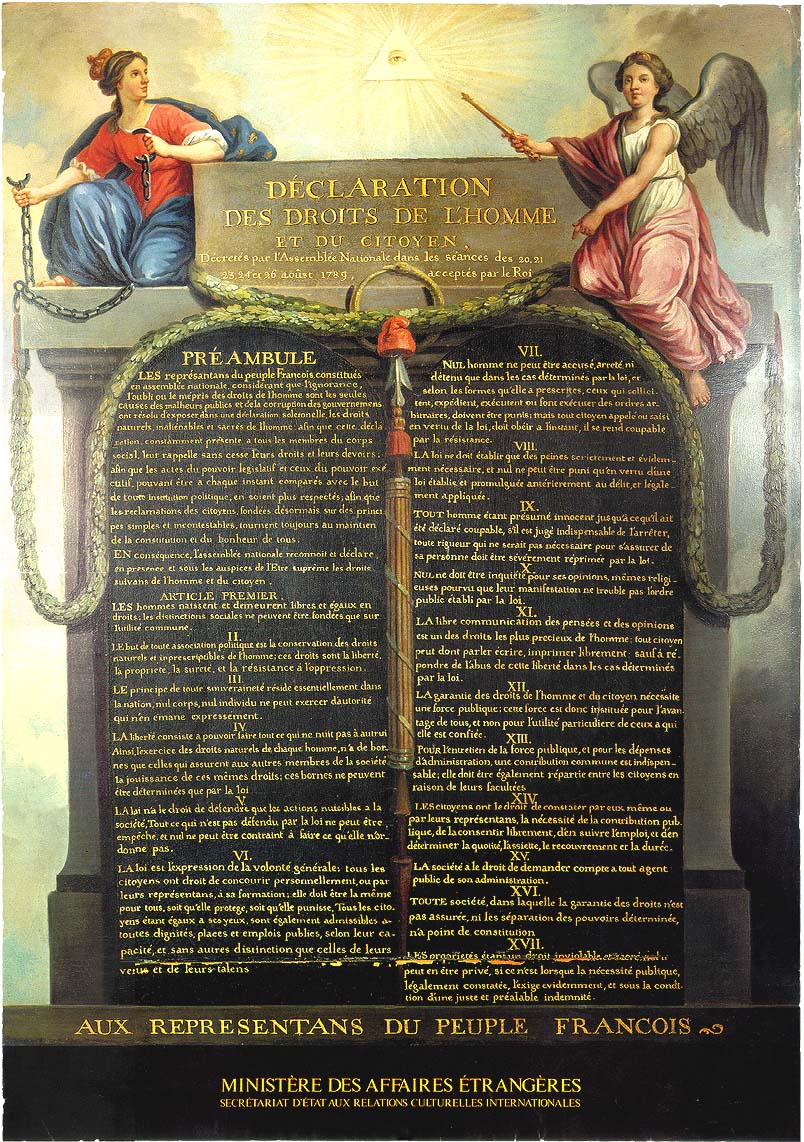 DÉCLARATION
DES DROITS DE L'HOMME
ET DU CITOYEN,
Décretés par l'Assemblée Nationale dans les séances des 20. 21
23. 24 et 26 août 1789, acceptés par le Roi
PRÉAMBULE
LES représentans du peuple Francois, constitués
en assemblée nationale, considérant que l'ignorance,
l'oubli ou le mépris des droits de l'homme sont les seules
causes des malheurs publics et de la corruption des gouvernemens
ont résolu d'exposer dans une déclaration solemnelle, les droits
naturels, inaliénables et sacrés de l'homme; afin que cette décla
ration, constamment présente a tous les membres du corps
social, leur rappelle sans cesse leurs droits et leurs devoirs;
afin que les actes du pouvoir legislatif et ceux du pouvoir exé
cutif, pouvant être a chaque instant comparés avec le but
de toute institution politique, en soient plus respectés; afin que
les reclamations des citoyens, fondées désormais sur des princi
pes simples et incontestables, tournent toujours au maintien
de la constitution et du bonheur de tous.
EN conséquence, l'assemblée nationale reconnoit et déclare,
en presence et sous les auspices de l'Etre suprême les droits
suivans de l'homme et du citoyen.
ARTICLE PREMIER.
LES hommes naissent et demeurent libres et égaux en
droits; les distinctions sociales ne peuvent être fondées que sur
l'utilité commune.
II.
LE but de toute association politique est la conservation des droits
naturels et inprescriptibles de l'homme; ces droits sont la liberté,
la propriété, la sureté, et la résistance à l'oppression.
III.
LE principe de toute souveraineté réside essentiellement dans
la nation, nul corps, nul individu ne peut exercer d'autorité
qui n'en émane expressement.
IV.
LA liberté consiste a pouvoir faire tout ce qui ne nuit pas à autrui
Ainsi, l'exercice des droits naturels de chaque homme, n'a de bor-
nes que celles qui assurent aux autres membres de la société
la jouissance de ces mêmes droits; ces bornes ne peuvent
être déterminées que par la loi
V.
LA loi n'a le droit de défendre que les actions nuisibles a la
société. Tout ce qui n'est pas défendu par la loi ne peut être
empêché, et nul ne peut être contraint à faire ce qu'elle n'or-
donne pas.
VI.
LA loi est l'expression de la volonté générale; tous les
citoyens ont droit de concourir personnellement, ou par
leurs représentans, à sa formation; elle doit être la même
pour tous, soit qu'elle protege, soit qu'elle punisse, Tous les cito
yens étant égaux a ses yeux, sont également admissibles a
toutes dignités, places et emplois publics, selon leur ca-
pacité, et sans autres distinction que celles de leurs
vertus et de leurs talens
VII.
NUL homme ne peut être accusé, arreté ni
détenu que dans les cas déterminés par la loi, et
selon les formes qu'elle a prescrites, ceux qui sollici
tent, expédient, exécutent ou font exécuter des ordres ar-
bitraires, doivent être punis; mais tout citoyen appelé ou saisi
en vertu de la loi, doit obéir a l'instant, il se rend coupable
par la résistance.
VIII.
LA loi ne doit établir que des peines strictement et évidem-
ment nécessaire, et nul ne peut être puni qu'en vertu d'une
loi établie et promulguée antérierement au délit, et légale-
ment appliquée.
IX.
TOUT homme étant présumé innocent jusqu'a ce qu'il ait
été déclaré coupable, s'il est jugé indispensable de l'arrêter,
toute rigueur qui ne serait pas nécessaire pour s'assurer de
sa personne doit être sévèrement réprimée par la loi.
X.
NUL ne doit être inquiété pour ses opinions, mêmes religi-
euses pourvu que leur manifestation ne trouble pas l'ordre
public établi par la loi.
XI.
LA libre communication des pensées et des opinions
est un des droits les plus precieux de l'homme; tout citoyen
peut dont parler écrire, imprimer librement; sauf à ré-
pondre de l'abus de cette liberté dans les cas déterminés
par la loi.
XII.
LA garantie des droits de l'homme et du citoyen nécessite
une force publique; cette force est donc instituée pour l'avan-
tage de tous, et non pour l'utilité particuliere de ceux a qui
elle est confiée.
XIII.
POUR l'entretien de la force publique, et pour les dépenses
d'administration, une contribution commune est indispen-
sable; elle doit être également répartie entre les citoyens en
raison de leurs facultées
XIV.
LES citoyens ont le droit de constater par eux même ou
par leurs représentans, la nécessité de la contribution pub-
lique, de la consentir librement, d'en suivre l'emploi, et d'en
déterminer la quotité, l'assiette, le recouvrement et la durée.
XV.
LA société a le droit de demander compte a tout agent
public de son administration.
XVI.
TOUTE société, dans laquelle la garantie des droits n'est
pas assurée, ni les séparation des pouvoirs déterminée,
n'a point de constitution
XVII.
LES propriétés étant un droit inviolable et sacré, nul ne
peut en être privé, si ce n'est lorsque la nécessité publique,
légalement constatée, l'exige evidemment, et sous la condi-
tion d'une juste et préalable indemnité.
AUX REPRESENTANS DU PEUPLE FRANCOIS
MINISTÈRE DES AFFAIRES ÉTRANGÈRES
SECRÉTARIAT D'ÉTAT AUX RELATIONS CULTURELLES INTERNATIONALES